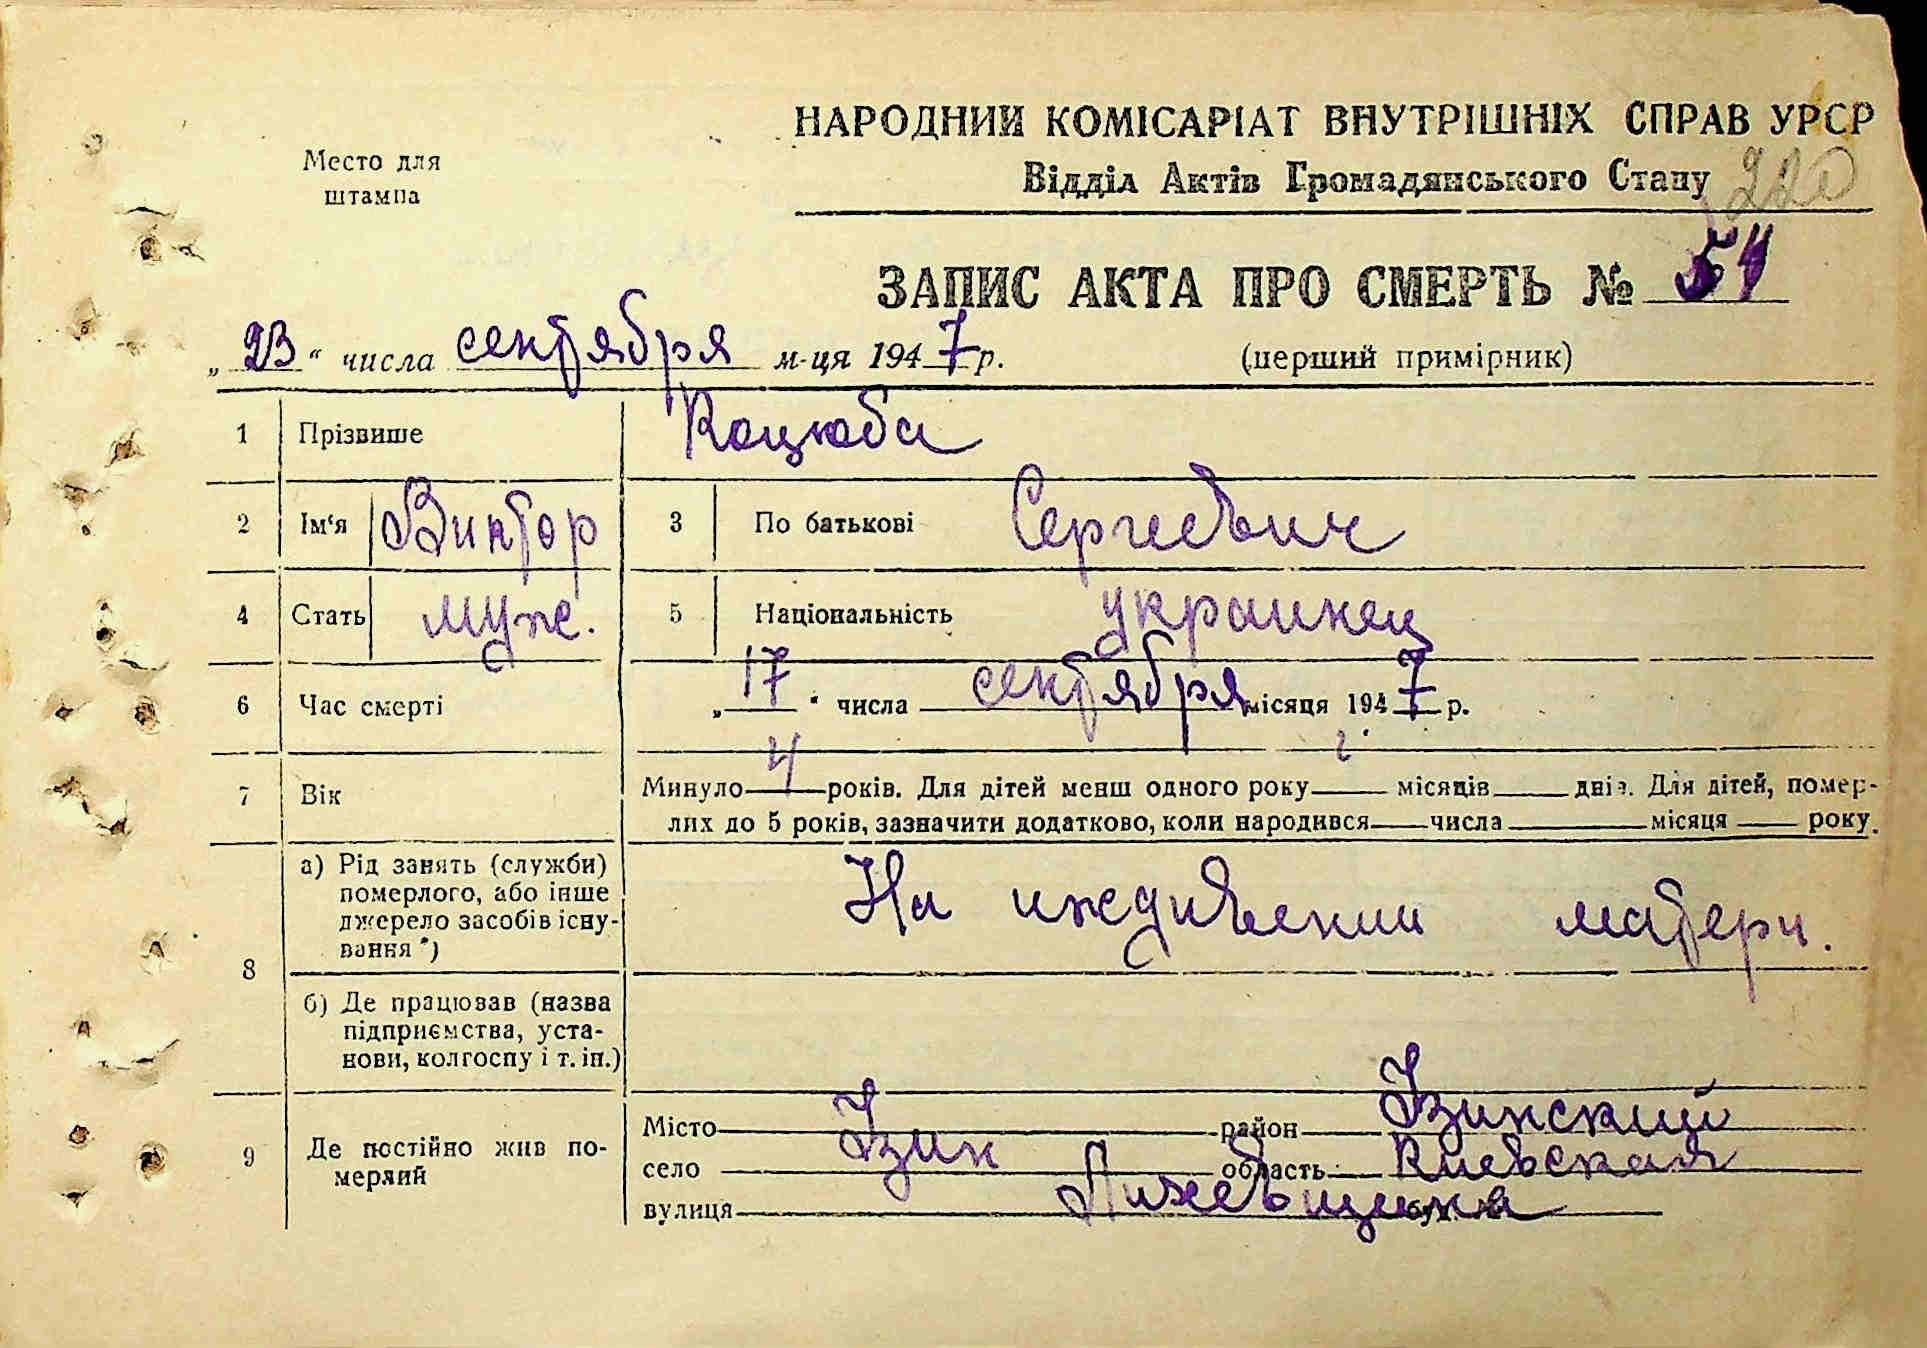 НАРОДНИЙ КОМІСАРІАТ ВНУТРІШНІХ СПРАВ УРСР
Место для
штампа
Відділ Актів Громадянського Стану 220
ЗАПИС АКТА ПРО СМЕРТЬ № 54
„23“ числа сентября м-ця 1947 р. (перший примірник)
1 Прізвише Коцюба
2 Ім‘я Виктор 3 По батькові Сергеевич
4 Стать муж. 5 Національність украинец
6 Час смерті „17“ числа сентября місяця 1947 р.
7 Вік Минуло 4 г. років. Для дітей менш одного року місяців днів. Для дітей, помер-
лих до 5 років, зазначити додатково, коли народився числа місяця року.
8 а) Рід занять (служби)
померлого, або інше
джерело засобів існу-
вання *) На иждивении матери.
б) Де працював (назва
підприємства, уста-
нови, колгоспу і т. ін.)
9 Де постійно жив по-
мерлий
Місто район Узинский
село Узин область Киевская
вулиця